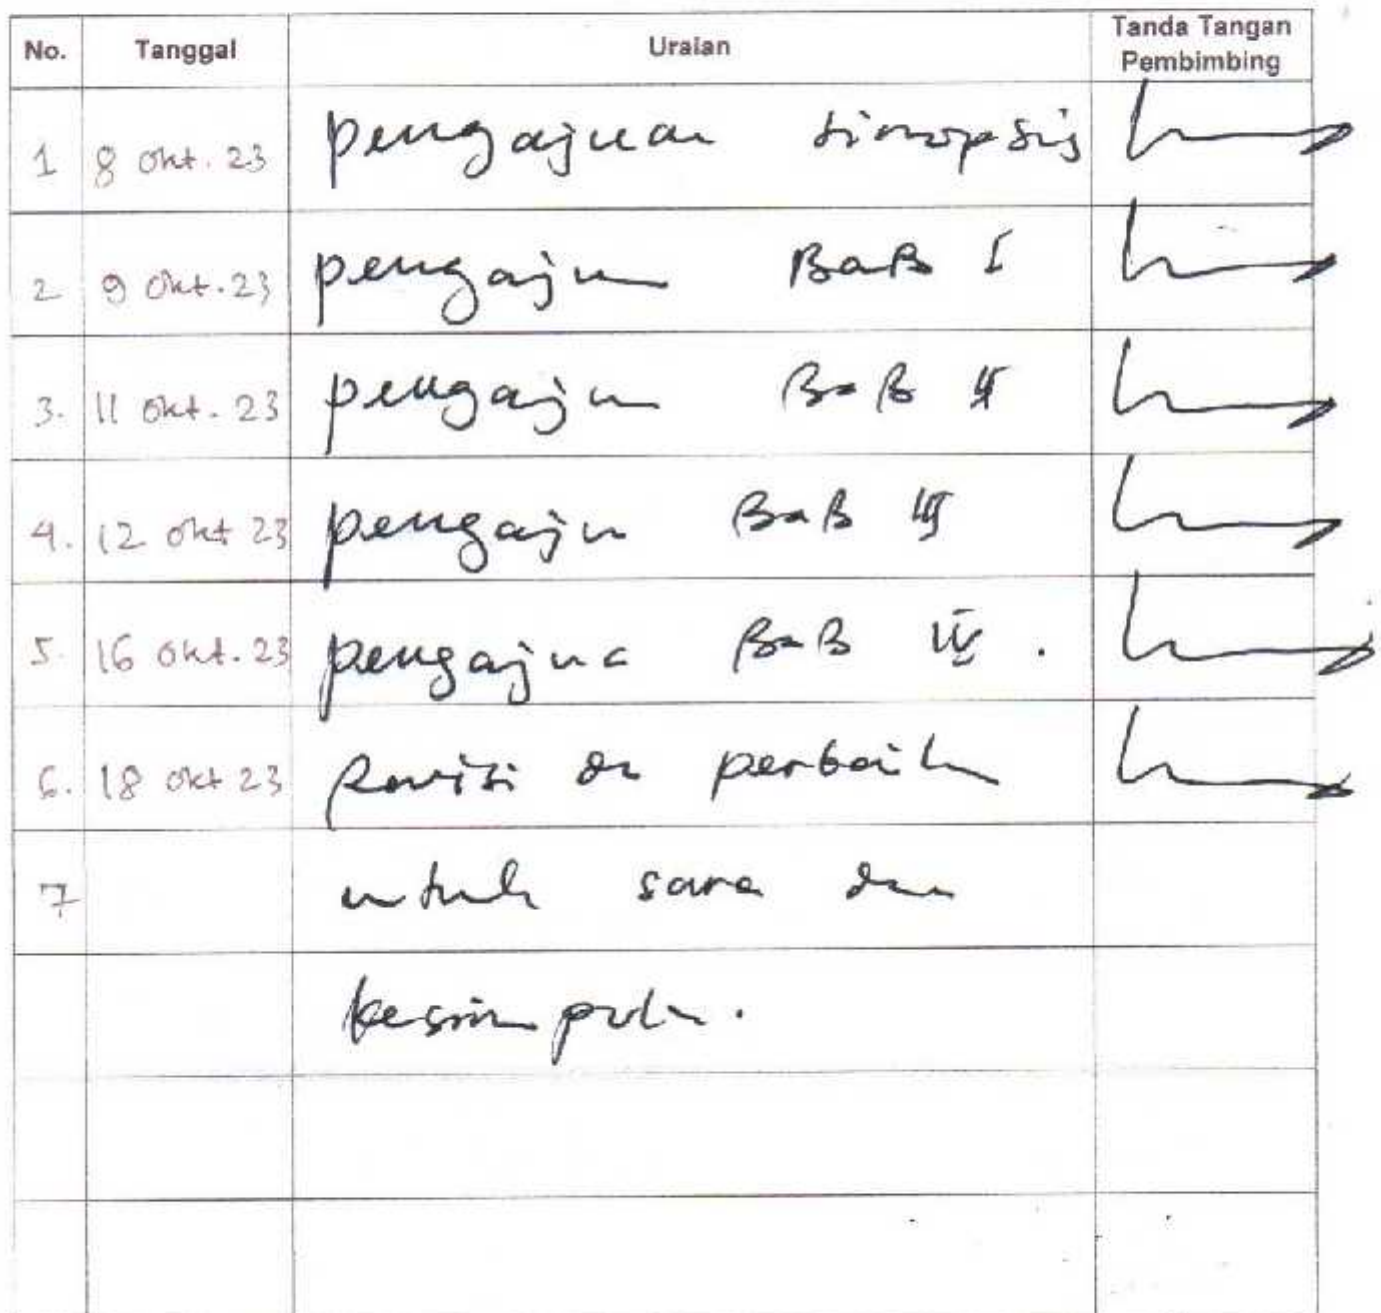 No. Tanggal Uraian Tanda Tangan Pembimbing
1 8 Okt. 23 pengajuan sinopsis
2 9 Okt. 23 pengajun BaB I
3. 11 Okt. 23 pengajun BaB II
4. 12 Okt 23 pengajun BaB III
5. 16 Okt. 23 pengajua BaB IV.
6. 18 Okt 23 Revisi dn perbaikn
7 untuk sara dan
kesimpuln.